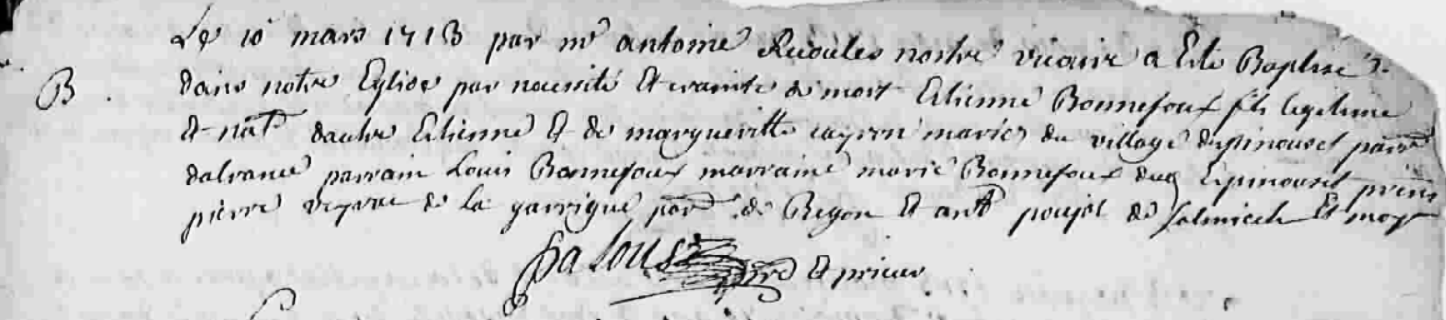 Le 10 mars 1713 par mr antoine Rivoules nostre vicaire a Esté Baptisé
B. dans notre Eglise par necessité Et crainte de mort Etienne Bonnefoux fils legitime
et natl dautre Etienne Et de margueritte cayron mariés du village despinouset parr
dalrance parrain Louis Bonnefoux marraine marie Bonnefoux dud Espinouset prnts
pierre de la garrigue parr de Begon Et ant poujol de salmiech Et moy
palous pre Et prieur